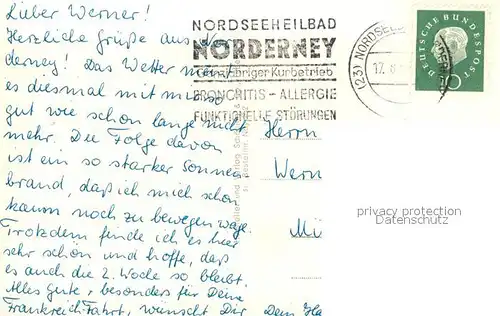 Lieber Werner!
Herzliche Grüße aus Nor
derney! Das Wetter meint
es diesmal mit mir so
gut wie schon lange nicht
mehr. Die Folge davon
ist ein so starker Sonnen
brand, daß ich mich schon
kaum noch zu bewegen wage.
Trotzdem finde ich es hier
sehr schön und hoffe, daß
es auch die 2. Woche so bleibt.
Alles Gute, besonders für Deine
Frankreich-Fahrt, wünscht Dir Dein
NORDSEEHEILBAD
NORDERNEY
Ganzjähriger Kurbetrieb
BRONCHITIS - ALLERGIE
FUNKTIONELLE STÖRUNGEN
(23) NORDSEE
17.
DEUTSCHE BUNDESPOST
10
Herrn
Wern
Mü
privacy protection
Datenschutz